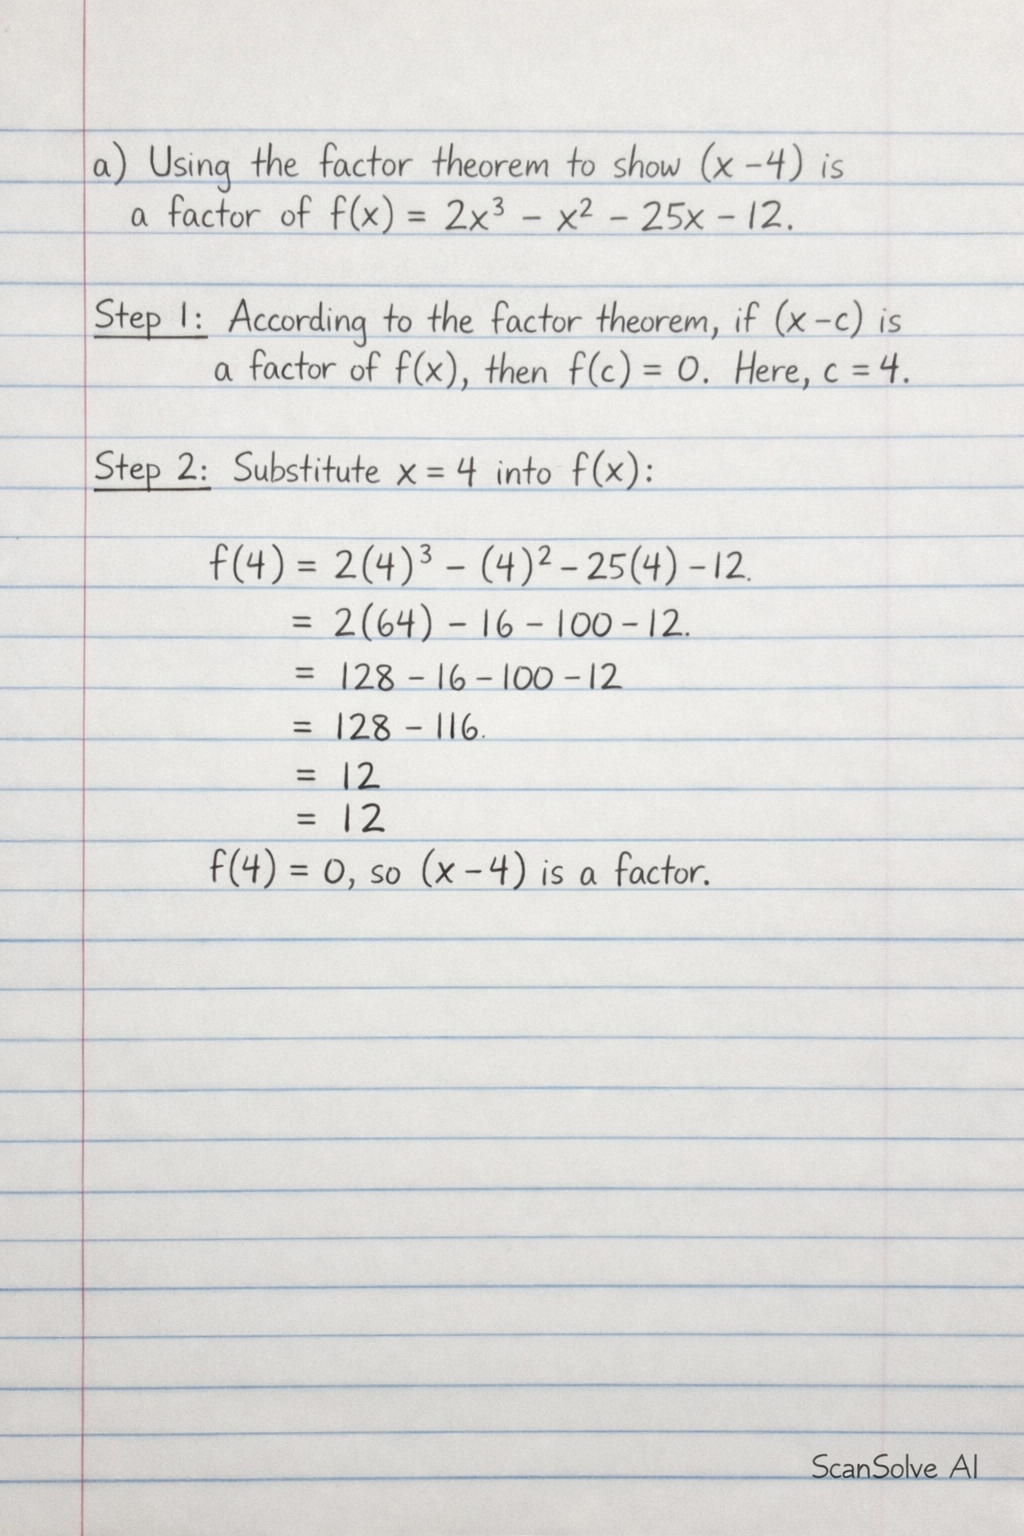 a) Using the factor theorem to show (x - 4) is
a factor of f(x) = 2x³ - x² - 25x - 12.
Step 1: According to the factor theorem, if (x - c) is
a factor of f(x), then f(c) = 0. Here, c = 4.
Step 2: Substitute x = 4 into f(x):
f(4) = 2(4)³ - (4)² - 25(4) - 12.
= 2(64) - 16 - 100 - 12.
= 128 - 16 - 100 - 12
= 128 - 116.
= 12
= 12
f(4) = 0, so (x - 4) is a factor.
ScanSolve AI